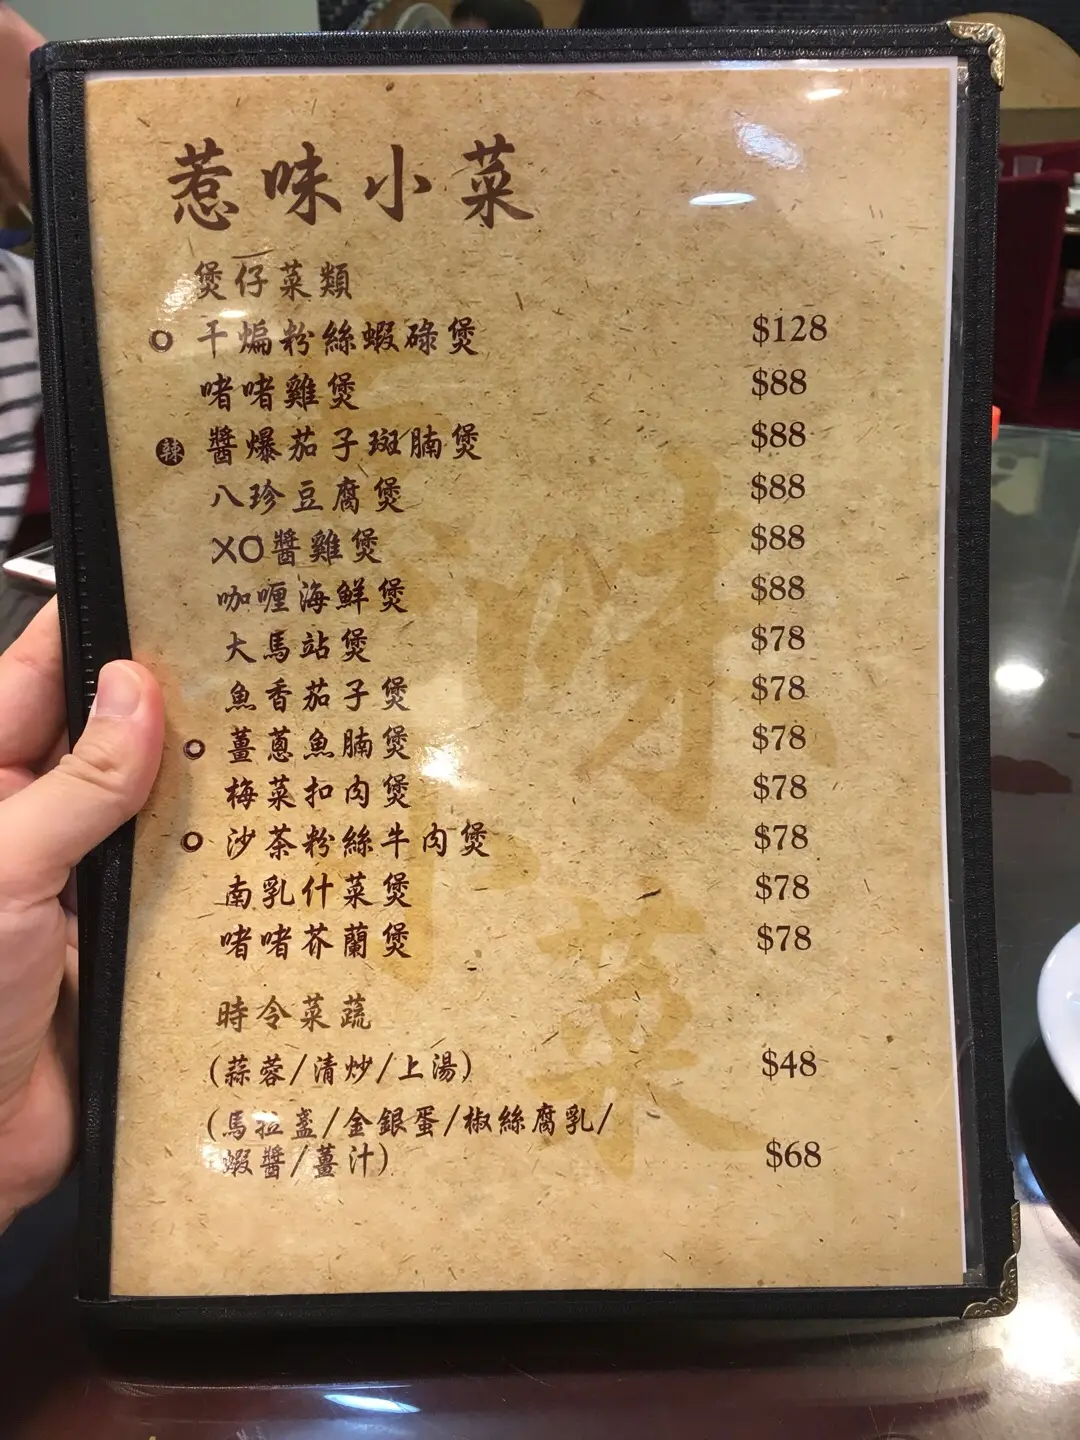 惹味小菜
煲仔菜類
干煸粉絲蝦碌煲 $128
啫啫雞煲 $88
辣 醬爆茄子斑腩煲 $88
八珍豆腐煲 $88
XO醬雞煲 $88
咖喱海鮮煲 $88
大馬站煲 $78
魚香茄子煲 $78
薑蔥魚腩煲 $78
梅菜扣肉煲 $78
沙茶粉絲牛肉煲 $78
南乳什菜煲 $78
啫啫芥蘭煲 $78
時令菜蔬
(蒜蓉/清炒/上湯) $48
(馬拉盞/金銀蛋/椒絲腐乳/
蝦醬/薑汁) $68